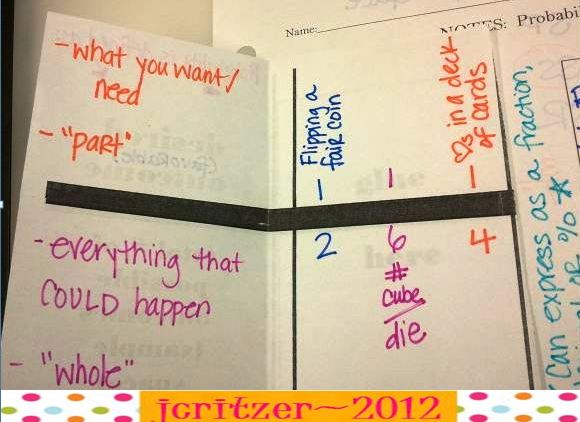 Name:
NOTES: Probabi
- what you want/
need
- "part"
Flipping a
fair coin
1
2
1
6
#
cube/
die
♡s in a deck
of cards
1
4
- everything that
COULD happen
- "whole"
glue
here
can express as a fraction,
OR % *
jcritzer~2012